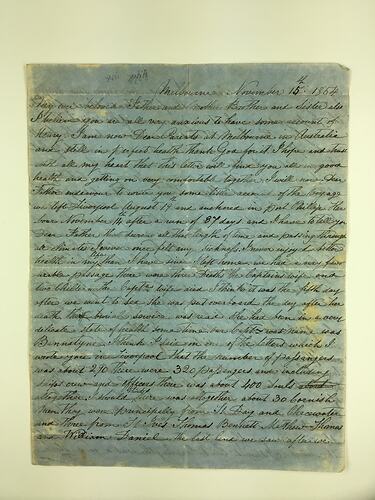 Melbourne November 15th 1864
My ever beloved Father and Mother Brother and Sister also
I believe you are all very anxious to have some account of
Henry I am now Dear Parents at Melbourne in Australia
and still in perfect health thank God for it I hope and trust
with all my heart that this letter will find you all in good
health and getting on very comfortable together I will now Dear
Father endeavour to write you some little account of the voyage
we left Liverpool August 19th and anchored in Port Phillip Har
bour November 14th after a run of 87 days and I have to tell you
Dear Father that during all that length of time and passing through
climates I never once felt any sickness I never enjoyed better
health in my life than I have since I left home we had a very fav
ourable passage there were three Deaths the Captains wife and
two children the Captns wife died I think it was the fifth day
after we went to sea she was put overboard the day after her
death the burial service was read she had been in a very
delicate state of health some time our Captns name was
Bannatyne I think I gave you in of the letters which I
wrote you in Liverpool that the number of passengers
was about 290 there were 320 passengers and including
ships crew and officers there was about 400 souls
altogether I should there was altogether about 30 cornish
men they were principally from St Day and Chacewater
and three from St Ives Thomas Bennett Mathew Thomas
and William Daniel the last land we saw after we